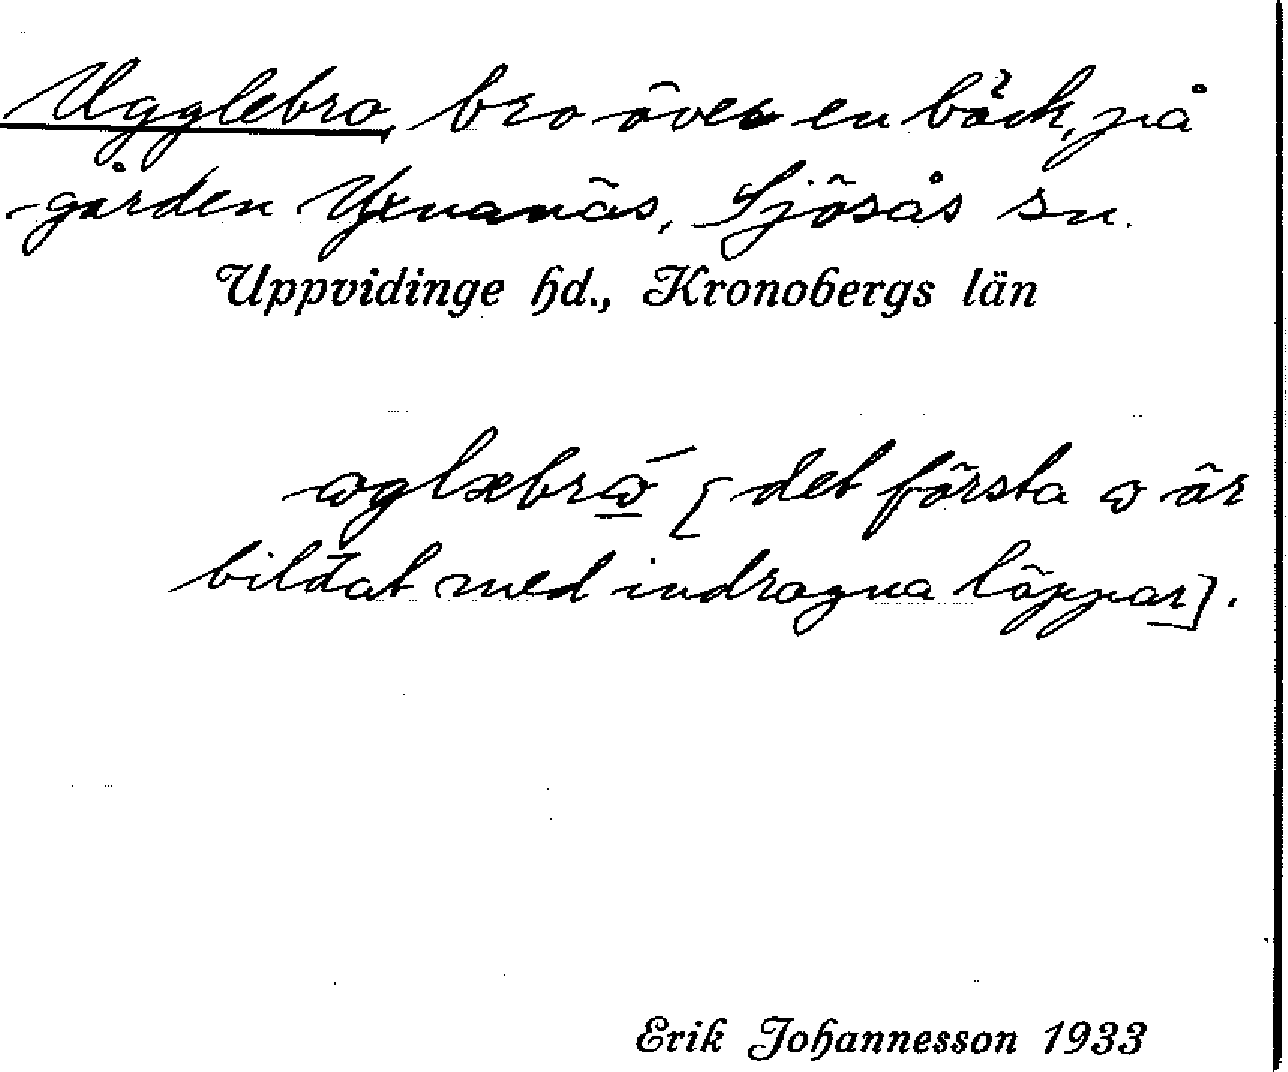 Ugglebro, bro över en bäck, på
gården Yxnanäs, Sjösås sn.
Uppvidinge hd., Kronobergs län
ɷglæbrɷ́ [det första ɷ är
bildat med indragna läppar].
Erik Johannesson 1933